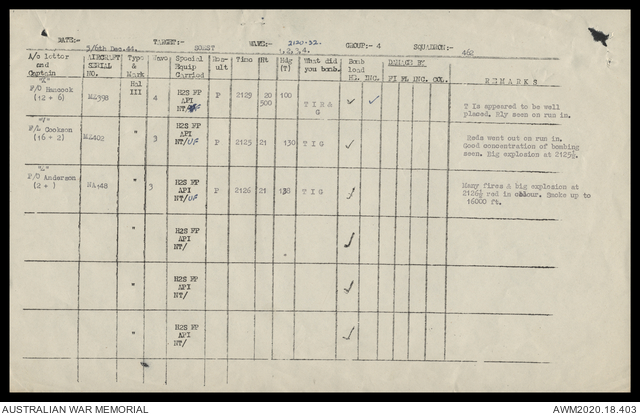 DATE:- 5/6th Dec.44. TARGET:- SOEST WAVE:- 2120-32. 1,2,3,4. GROUP:- 4 SQUADRON:- 462
A/c letter and Captain AIRCRAFT SERIAL NO. Type & Mark Wave Special Equip Carried Result Time Ht Hdg (T) What did you bomb. Bomb load HE. INC. DAMAGE BY FI FL INC. COL. REMARKS
F/O Hancock (12 + 6) MZ398 Hal III 4 H2S FP API NT/ P 2129 20 500 100 T I R & G ✓ ✓ T Is appeared to be well placed. Rly seen on run in.
F/L Cookson (16 + 2) MZ402 " 3 H2S FP API NT/UF P 2125 21 130 T I G ✓ Reds went out on run in. Good concentration of bombing seen. Big explosion at 2125½.
F/O Anderson (2 + ) NA148 " 3 H2S FP API NT/UF P 2126 21 138 T I G ✓ Many fires & big explosion at 2126½ red in colour. Smoke up to 16000 ft.
" H2S FP API NT/ ✓
" H2S FP API NT/ ✓
" H2S FP API NT/ ✓
AUSTRALIAN WAR MEMORIAL AWM2020.18.403